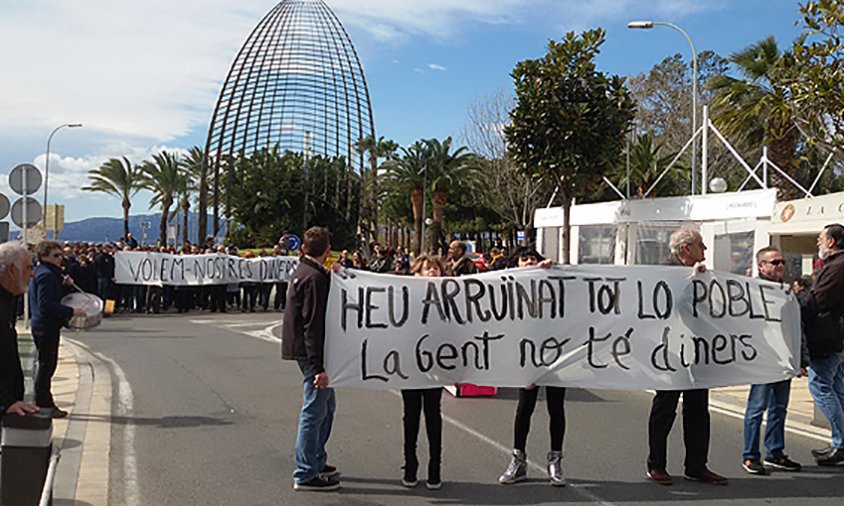 VOLEM-NOSTRES DINERS
HEU ARRUÏNAT TOT LO POBLE
La Gent no té diners